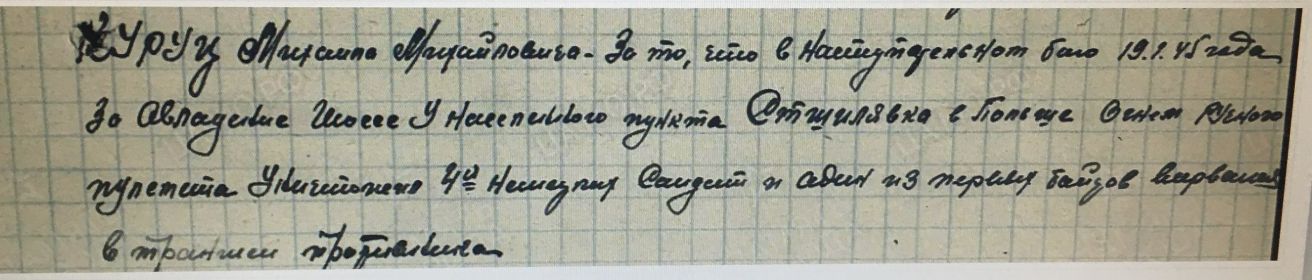 КУРУЦ Михаила Михайловича - За то, что в наступательном бою 19.1.45 года
За Овладение Шоссе У населенного пункта Стшилявка в Польше Огнем Ручного
пулемета Уничтожено 4й Немецких Салдат и один из первых байцов Ворвался
в траншеи противника